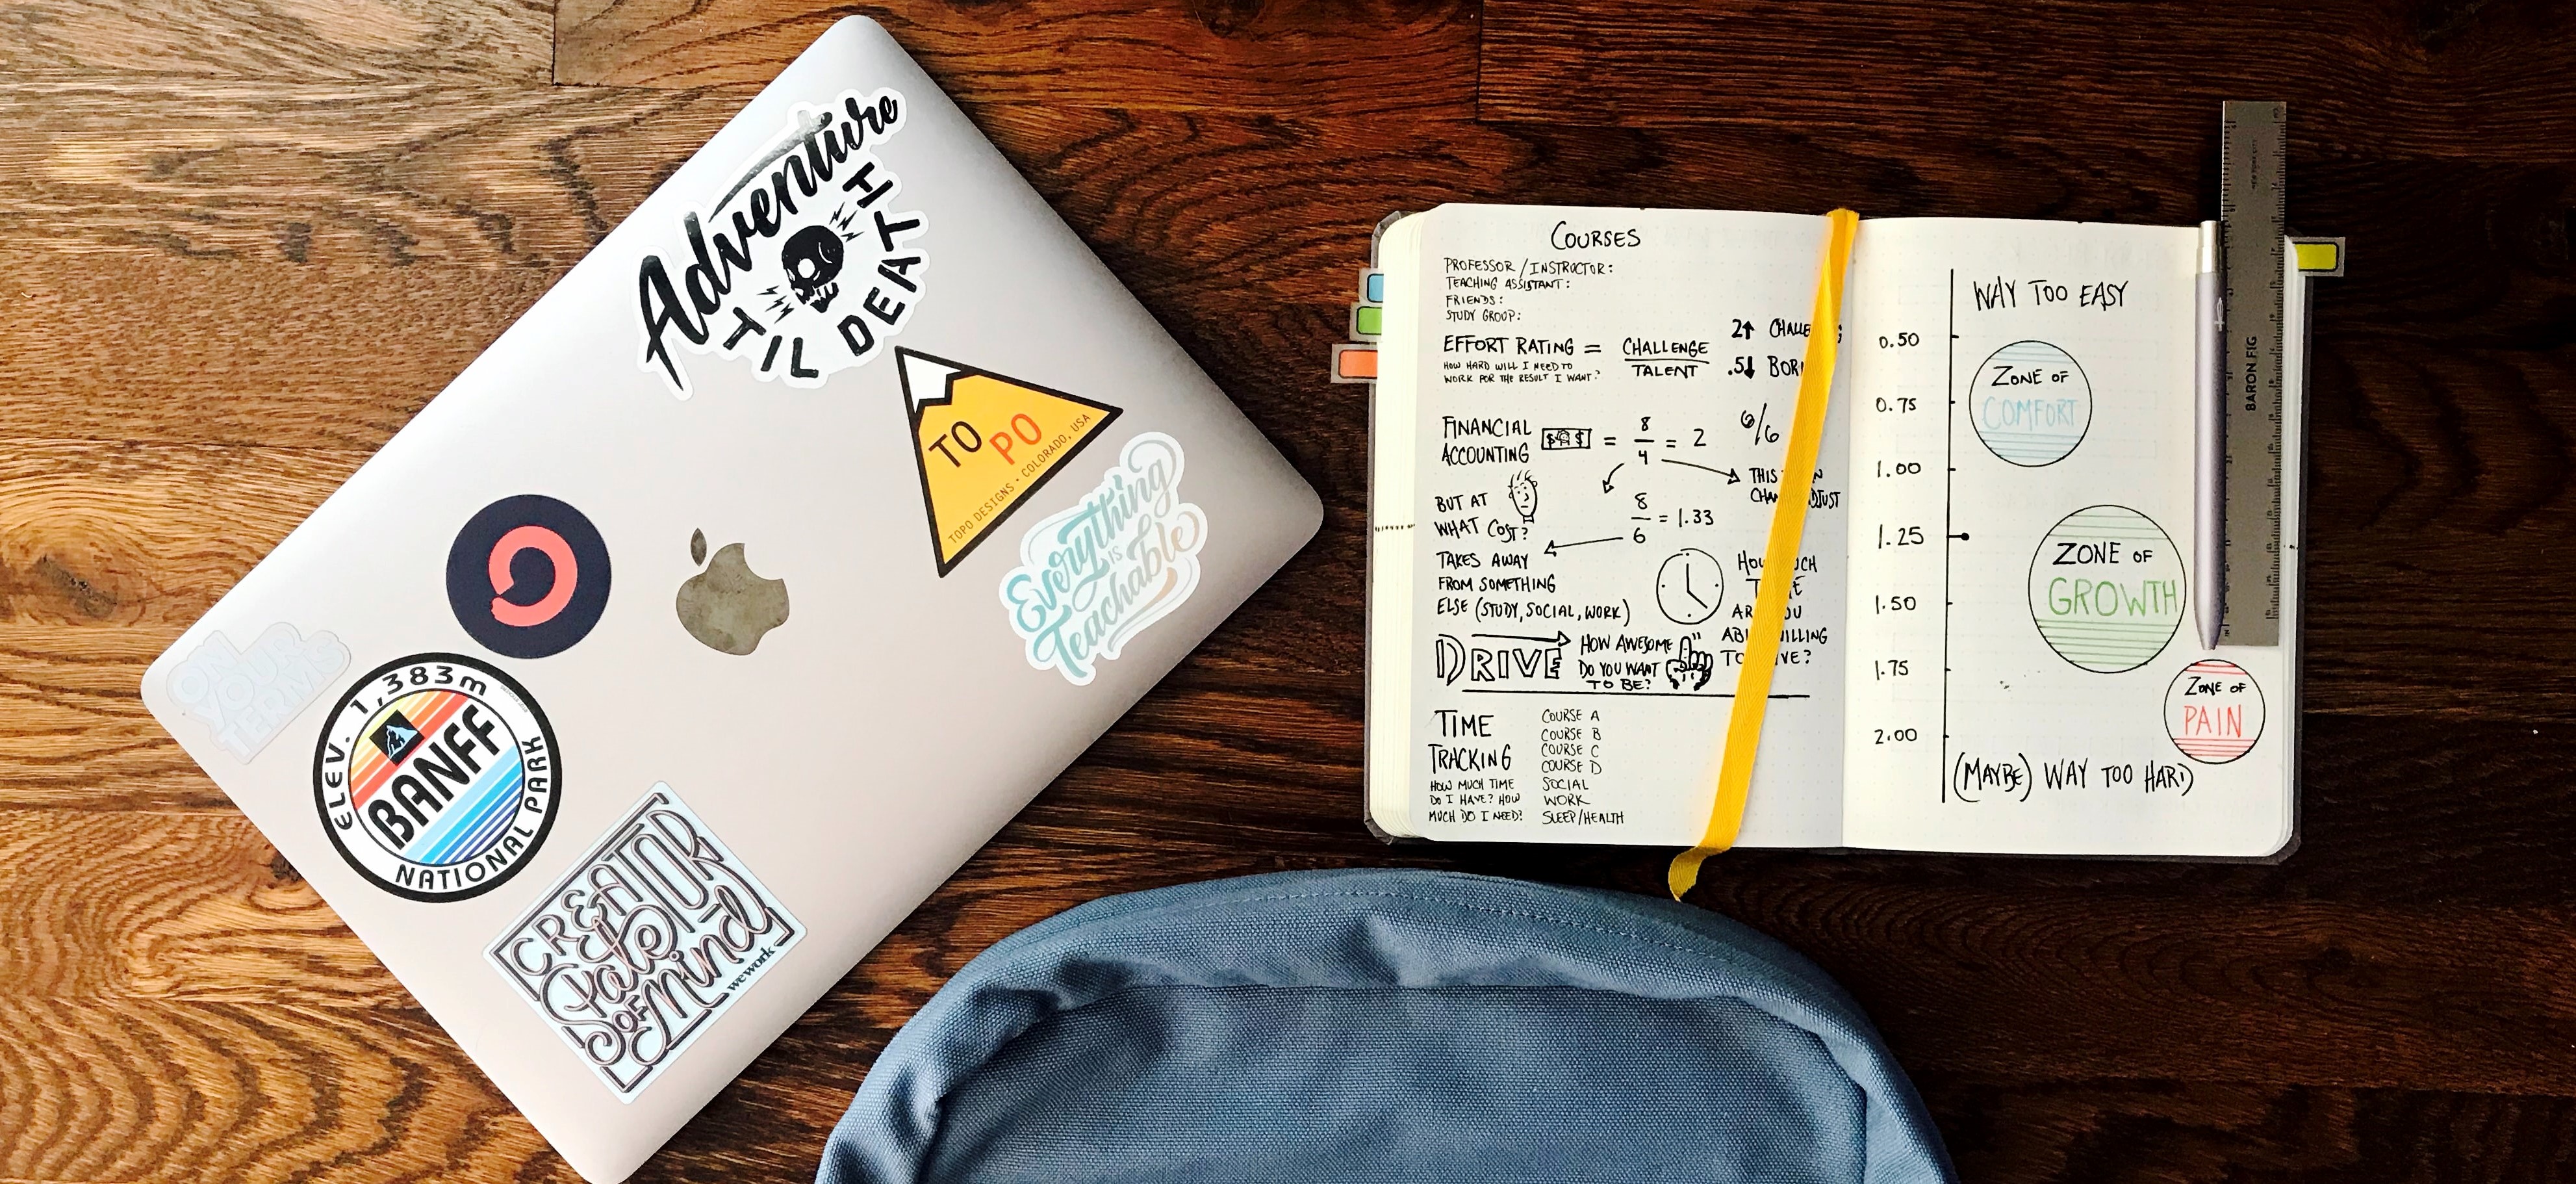 Adventure
TIL DEATH
TO PO
TOPO DESIGNS · COLORADO, USA
Everything
IS
Teachable
ON
YOUR
TERMS
ELEV. 1,383m
BANFF
NATIONAL PARK
CREATOR
State
OF Mind
wework
COURSES
PROFESSOR / INSTRUCTOR:
TEACHING ASSISTANT:
FRIENDS:
STUDY GROUP:
EFFORT RATING = CHALLENGE / TALENT
HOW HARD WILL I NEED TO
WORK FOR THE RESULT I WANT?
2↑
.5↓
FINANCIAL
ACCOUNTING $$ = 8/4 = 2 6/6
THIS
BUT AT
WHAT COST?
8/6 = 1.33
TAKES AWAY
FROM SOMETHING
ELSE (STUDY, SOCIAL, WORK)
TO
DRIVE
HOW AWESOME
DO YOU WANT
TO BE?
TIME
TRACKING
HOW MUCH TIME
DO I HAVE? HOW
MUCH DO I NEED?
COURSE A
COURSE B
COURSE C
COURSE D
SOCIAL
WORK
SLEEP/HEALTH
WAY TOO EASY
0.50
ZONE OF
COMFORT
0.75
1.00
1.25
ZONE OF
GROWTH
1.50
1.75
ZONE OF
PAIN
2.00
(MAYBE) WAY TOO HARD
BARON FIG